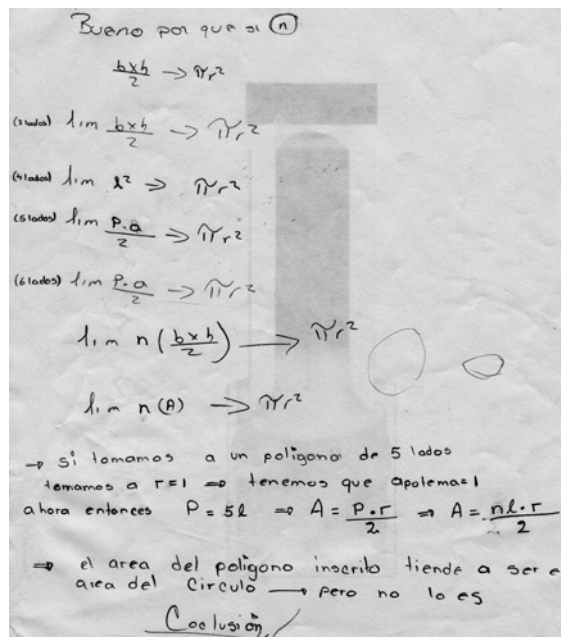 Bueno por que si n
b×h/2 → πr²
(3 lados) lim b×h/2 → πr²
(4 lados) lim l² → πr²
(5 lados) lim P.a/2 → πr²
(6 lados) lim P.a/2 → πr²
lim n(b×h/2) → πr²
lim n(A) → πr²
→ si tomamos a un poligono de 5 lados
tomamos a r=1 ⇒ tenemos que apotema=1
ahora entonces P = 5l ⇒ A = P.r/2 ⇒ A = nl.r/2
⇒ el area del poligono inscrito tiende a ser e
area del circulo → pero no lo es
Coclusión